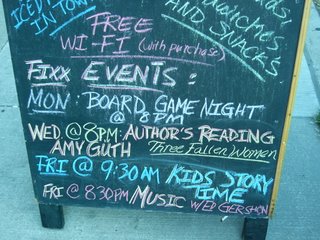 ICED
IN TOWN
AND SNACKS
FREE
WI-FI (with purchase)
FIXX EVENTS:
MON: BOARD GAME NIGHT
@ 8PM
WED @ 8PM: AUTHOR'S READING
AMY GUTH Three Fallen Women
FRI @ 9:30AM KIDS STORY
TIME
FRI @ 8:30PM MUSIC W/ED GERSHON